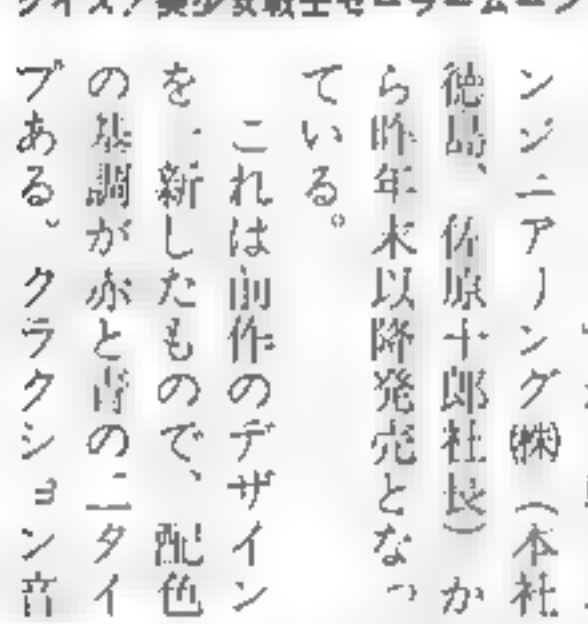 クイズ/美少女戦士セーラームーン
ンジニアリング㈱(本社
徳島、佐原十郎社長)か
ら昨年末以降発売となっ
ている。
これは前作のデザイン
を一新したもので、配色
の基調が赤と青の二タイ
プある。クラクション音